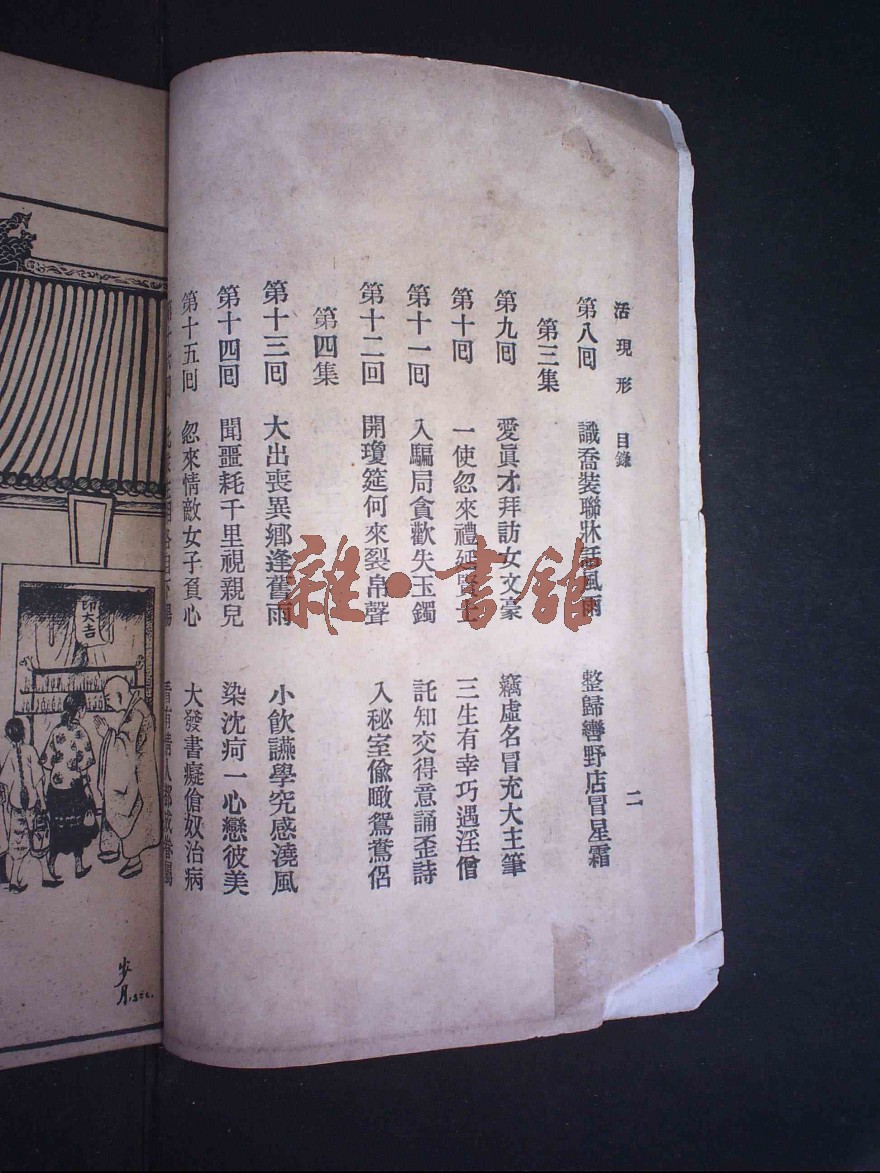 活現形 目錄 二
第八回 識喬裝聯牀話風雨 整歸轡野店冒星霜
第三集
第九回 愛眞才拜訪女文豪 竊虛名冒充大主筆
第十回 一使忽來禮延賢士 三生有幸巧遇淫僧
第十一回 入騙局貪歡失玉鐲 託知交得意誦歪詩
第十二回 開瓊筵何來裂帛聲 入秘室偸瞰鴛鴦侶
第四集
第十三回 大出喪異鄕逢舊雨 小飮讌學究感澆風
第十四回 聞噩耗千里視親兒 染沈疴一心戀彼美
第十五回 忽來情敵女子負心 大發書癡傖奴治病
印大吉
步月
雜·書館